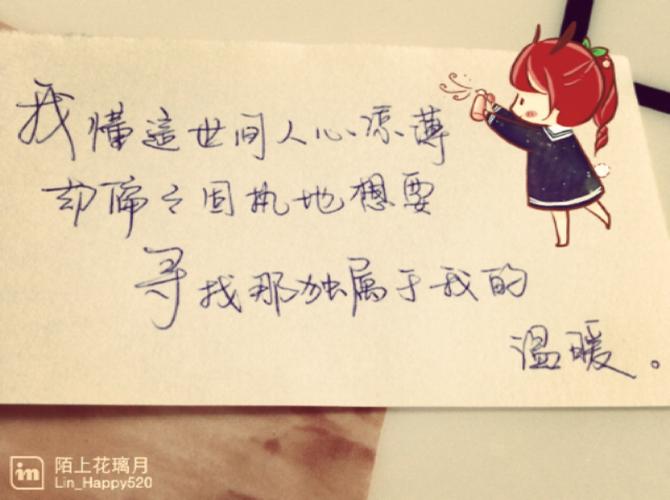 我懂這世间人心凉薄
却偏々固执地想要
寻找那独属于我的
温暖。
in
陌上花璃月
Lin_Happy520